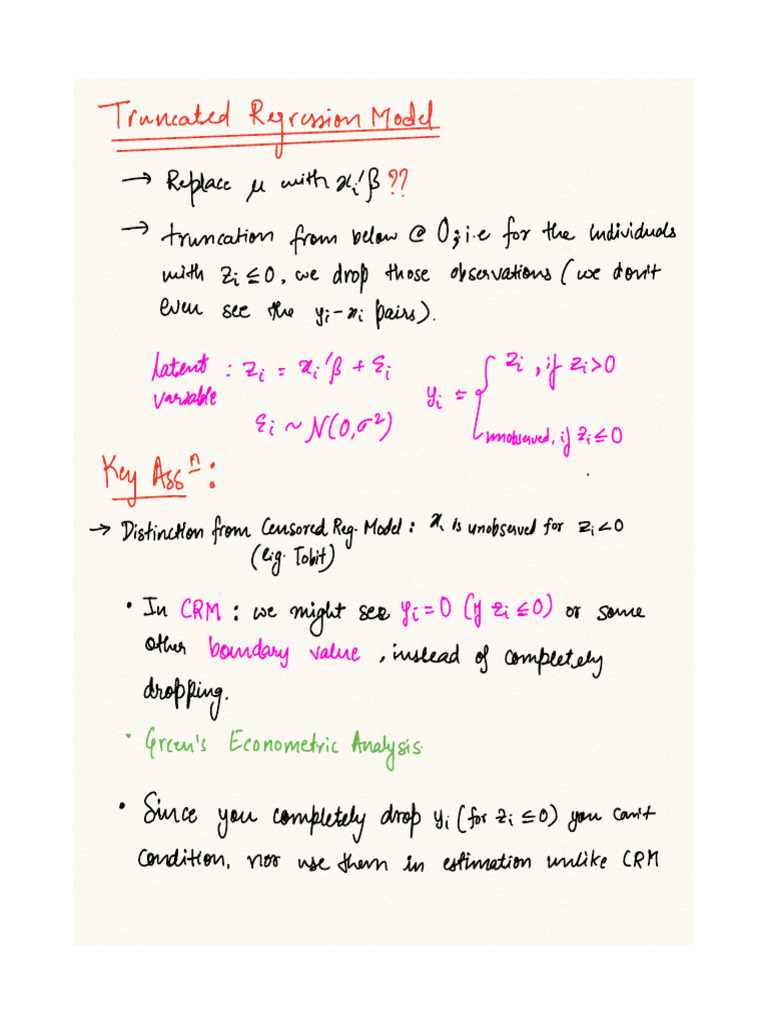 Truncated Regression Model
→ Replace μ with xi'β ??
→ truncation from below @ 0; i.e for the individuals
with zi ≤ 0, we drop those observations (we don't
even see the yi-xi pairs).
latent variable : zi = xi'β + εi
εi ~ N(0,σ²)
yi = { zi, if zi>0
unobserved, if zi ≤ 0
Key Assⁿ:
→ Distinction from Censored Reg. Model: xi is unobserved for zi<0
(eg. Tobit)
• In CRM : we might see yi=0 (if zi ≤ 0) or some
other boundary value, instead of completely
dropping.
• Green's Econometric Analysis.
• Since you completely drop yi (for zi ≤ 0) you can't
condition, nor use them in estimation unlike CRM